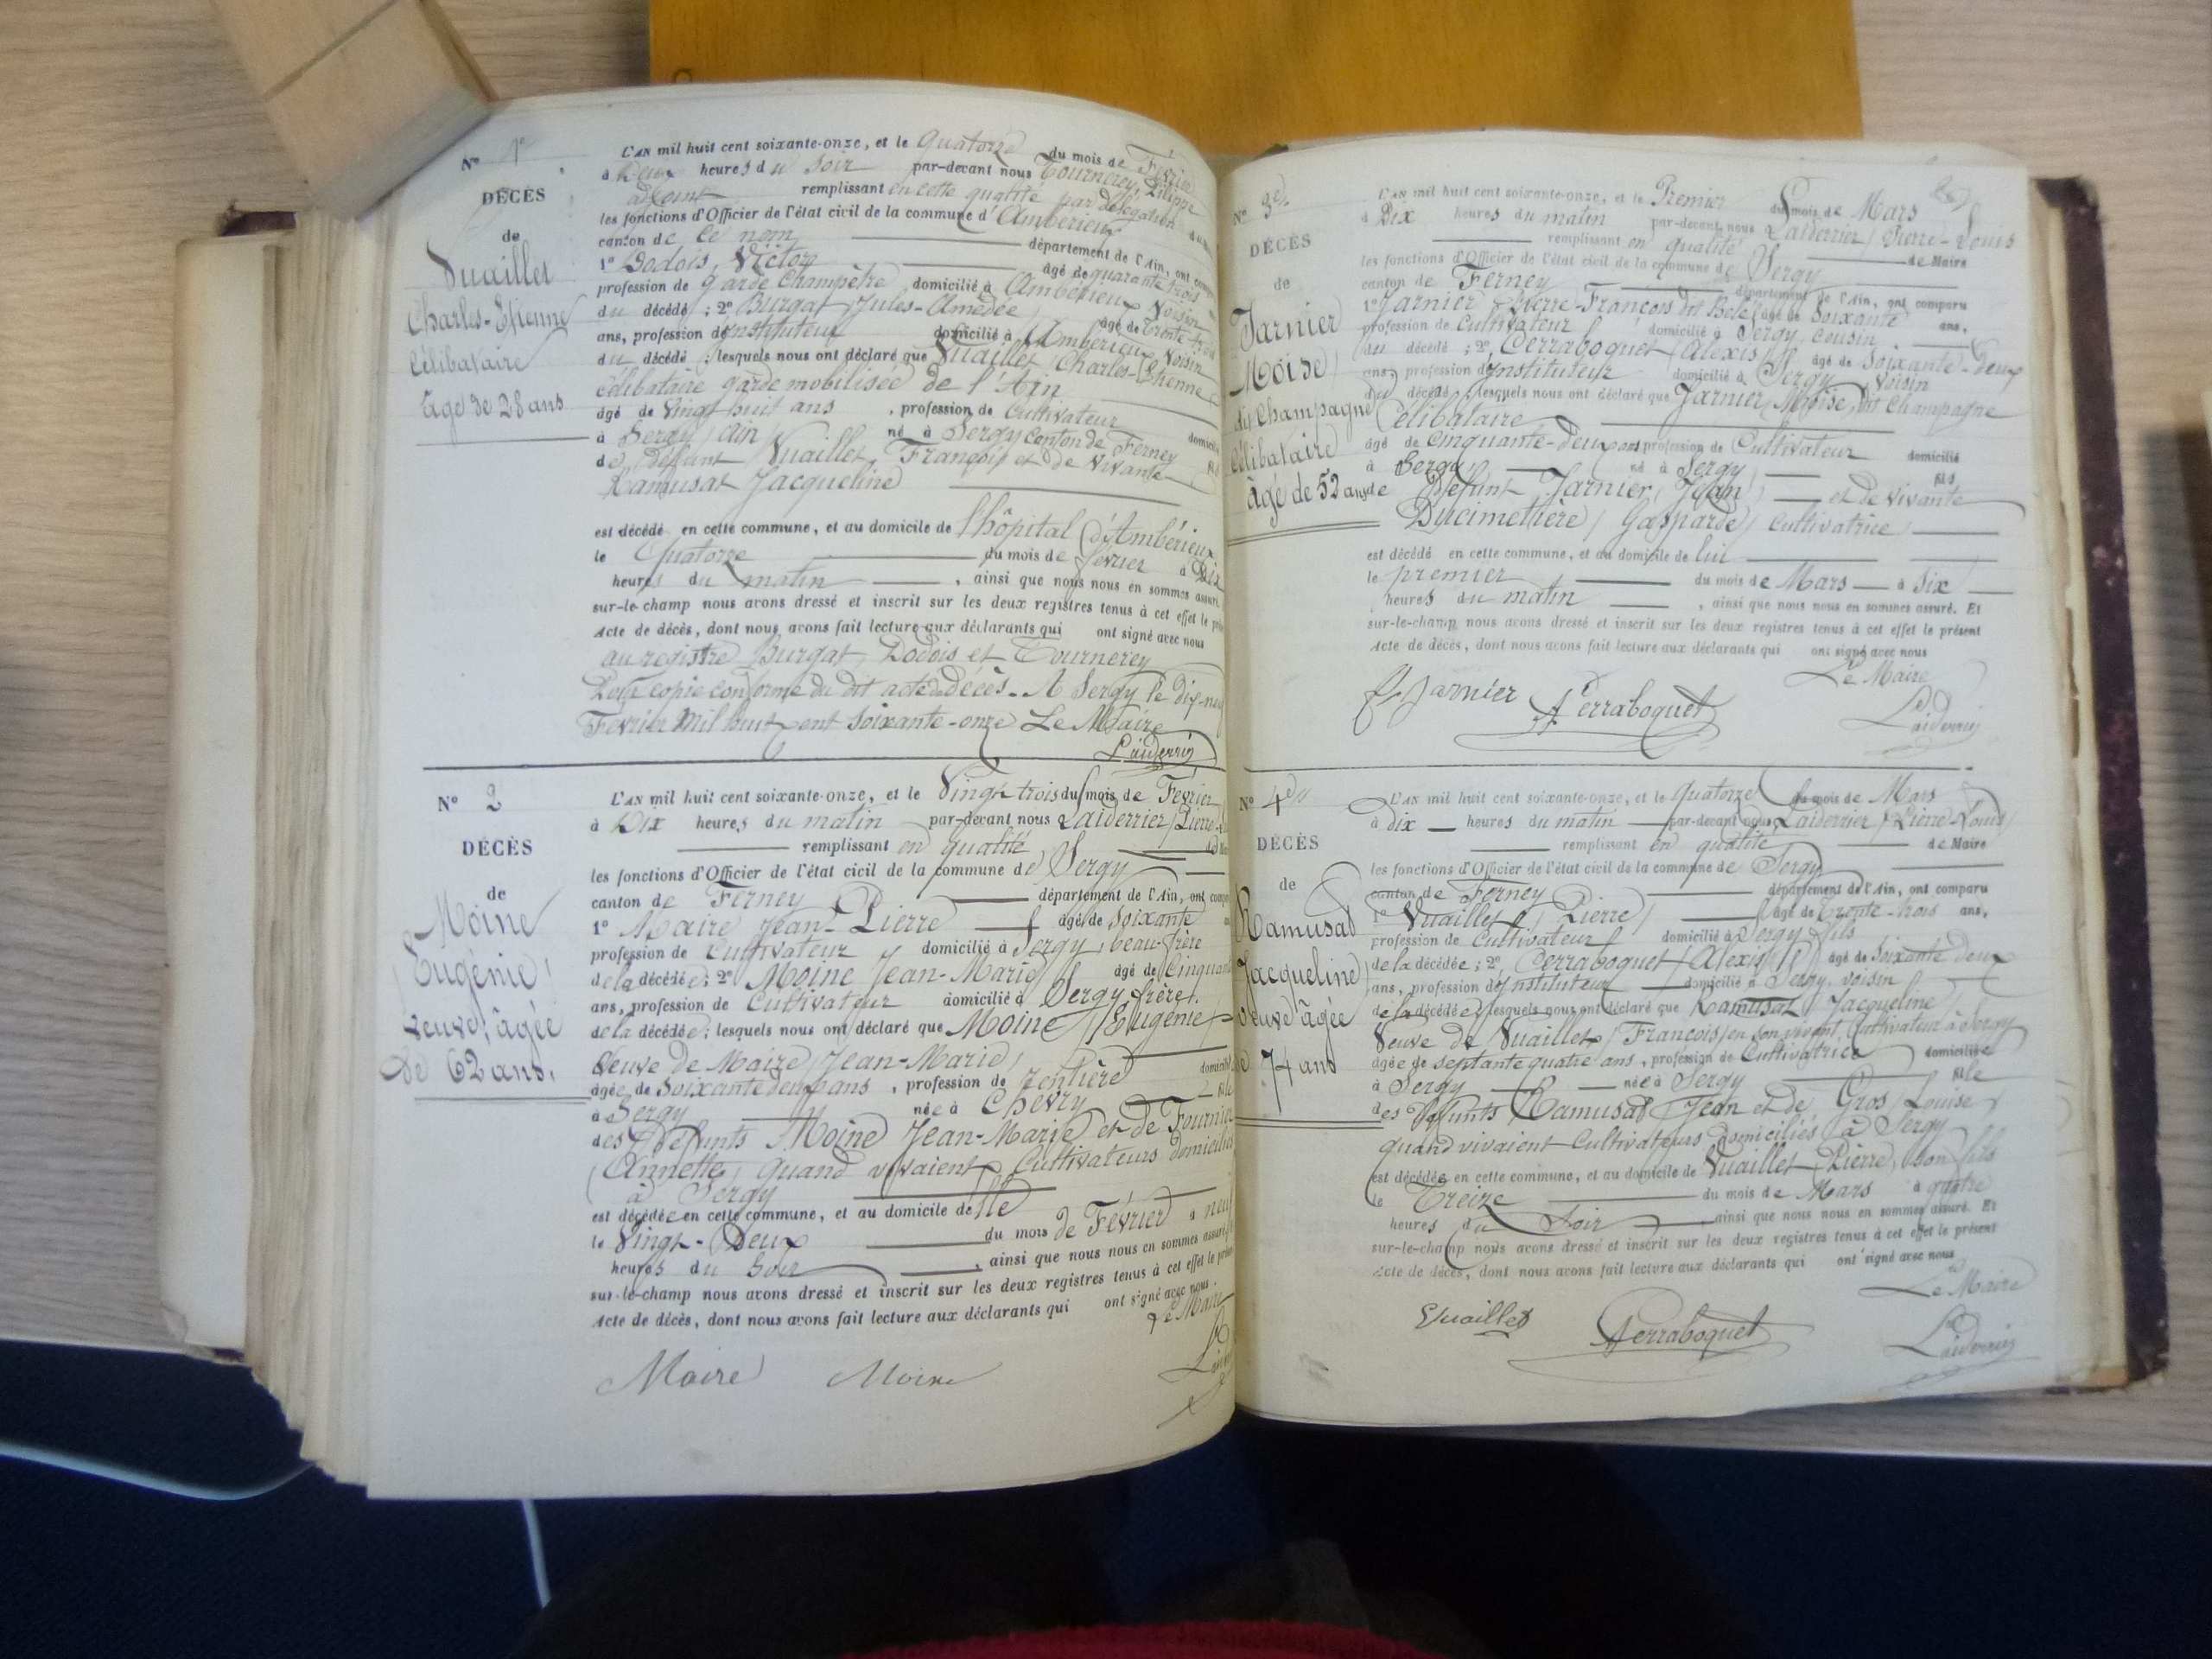 N° 1er
DÉCÈS
de
Vuaillet
Charles-Etienne
Célibataire
âgé de 28 ans
L'AN mil huit cent soixante-onze, et le Quatorze du mois de Février
à Deux heures du Soir par-devant nous Tournerey, Philippe
adjoint remplissant en cette qualité par délégation
les fonctions d'Officier de l'état civil de la commune d'Ambérieux
canton de Ce nom département de l'Ain, ont
1° Dodois, Victor âgé de quarante trois
profession de Garde Champêtre domicilié à Ambérieux Voisin
du décédé ; 2° Burgat, Jules-Amédée âgé de trente
ans, profession d'Instituteur domicilié à Ambérieux Voisin
du décédé ; lesquels nous ont déclaré que Vuaillet Charles-Etienne
Célibataire garde mobilisée de l'Ain
âgé de Vingt huit ans, profession de Cultivateur
à Sergy (Ain) né à Sergy Canton de Ferney
de défunt Vuaillet, François et de vivante
Ramusat Jacqueline
est décédé en cette commune, et au domicile de l'hôpital d'Ambérieux
le Quatorze du mois de février à Dix
heures du matin, ainsi que nous nous en sommes assuré
sur-le-champ nous avons dressé et inscrit sur les deux registres tenus à cet effet le
Acte de décès, dont nous avons fait lecture aux déclarants qui ont signé avec nous
au registre Burgat, Dodois et Tournerey
Pour copie conforme du dit acte de décès. A Sergy le dix-neuf
Février Mil huit cent soixante-onze Le Maire
Laiderrier
N° 2
DÉCÈS
de
Moine
Eugénie
veuve, âgée
de 62 ans.
L'AN mil huit cent soixante-onze, et le Vingt trois du mois de Février
à Dix heures du matin par-devant nous Laiderrier, Pierre
remplissant en qualité de
les fonctions d'Officier de l'état civil de la commune de Sergy
canton de Ferney département de l'Ain, ont
1° Maire Jean-Pierre âgé de Soixante
profession de Cultivateur domicilié à Sergy, beau-frère
de la décédée ; 2° Moine Jean-Marie âgé de Cinquante
ans, profession de Cultivateur domicilié à Sergy frère
de la décédée ; lesquels nous ont déclaré que Moine Eugénie
Veuve de Maire Jean-Marie
âgée de Soixante deux ans, profession de rentière
à Sergy née à Chevry fille
des Défunts Moine Jean-Marie et de Fournier
Annette, quand vivaient Cultivateurs domiciliés
à Sergy
est décédée en cette commune, et au domicile de
le Vingt-Deux du mois de Février à neuf
heures du Soir, ainsi que nous nous en sommes assuré
sur-le-champ nous avons dressé et inscrit sur les deux registres tenus à cet effet le
Acte de décès, dont nous avons fait lecture aux déclarants qui ont signé avec nous.
Le Maire
Maire Moine
N° 3
DÉCÈS
de
Jarnier
Moïse
dit Champagne
Célibataire
âgé de 52 ans
L'AN mil huit cent soixante-onze, et le Premier du mois de Mars
à Dix heures du matin par-devant nous Laiderrier, Pierre-Louis
remplissant en qualité de Maire
les fonctions d'Officier de l'état civil de la commune de Sergy
canton de Ferney département de l'Ain, ont comparu
1° Jarnier, Pierre-François dit âgé de Soixante ans,
profession de Cultivateur domicilié à Sergy, cousin
du décédé ; 2° Perraboquet Alexis âgé de Soixante-deux
ans, profession d'Instituteur domicilié à Sergy, Voisin
du décédé ; lesquels nous ont déclaré que Jarnier Moïse, dit Champagne
Célibataire
âgé de Cinquante-deux ans profession de Cultivateur domicilié
à Sergy né à Sergy fils
de Défunt Jarnier, Jean et de vivante
Ducimetière Gasparde Cultivatrice
est décédé en cette commune, et au domicile de lui
le premier du mois de Mars à Six
heures du matin, ainsi que nous nous en sommes assuré. Et
sur-le-champ nous avons dressé et inscrit sur les deux registres tenus à cet effet le présent
Acte de décès, dont nous avons fait lecture aux déclarants qui ont signé avec nous
Le Maire
Jarnier Perraboquet Laiderrier
N° 4
DÉCÈS
de
Ramusat
Jacqueline
veuve âgée
de 74 ans
L'AN mil huit cent soixante-onze, et le Quatorze du mois de Mars
à dix heures du matin par-devant nous Laiderrier, Pierre-Louis
remplissant en qualité de Maire
les fonctions d'Officier de l'état civil de la commune de Sergy
canton de Ferney département de l'Ain, ont comparu
1° Vuaillet, Pierre âgé de trente-trois ans,
profession de Cultivateur domicilié à Sergy fils
de la décédée ; 2° Perraboquet Alexis âgé de Soixante deux
ans, profession d'Instituteur domicilié à Sergy, voisin
de la décédée ; lesquels nous ont déclaré que Ramusat Jacqueline
Veuve de Vuaillet François en son vivant, Cultivateur à Sergy
âgée de septante quatre ans, profession de Cultivatrice domiciliée
à Sergy née à Sergy fille
des Défunts Ramusat Jean et de Gros Louise
quand vivaient Cultivateurs domiciliés à Sergy
est décédée en cette commune, et au domicile de Vuaillet Pierre, son fils
le Treize du mois de Mars à quatre
heures du Soir, ainsi que nous nous en sommes assuré. Et
sur-le-champ nous avons dressé et inscrit sur les deux registres tenus à cet effet le présent
Acte de décès, dont nous avons fait lecture aux déclarants qui ont signé avec nous
Le Maire
Vuaillet Perraboquet Laiderrier